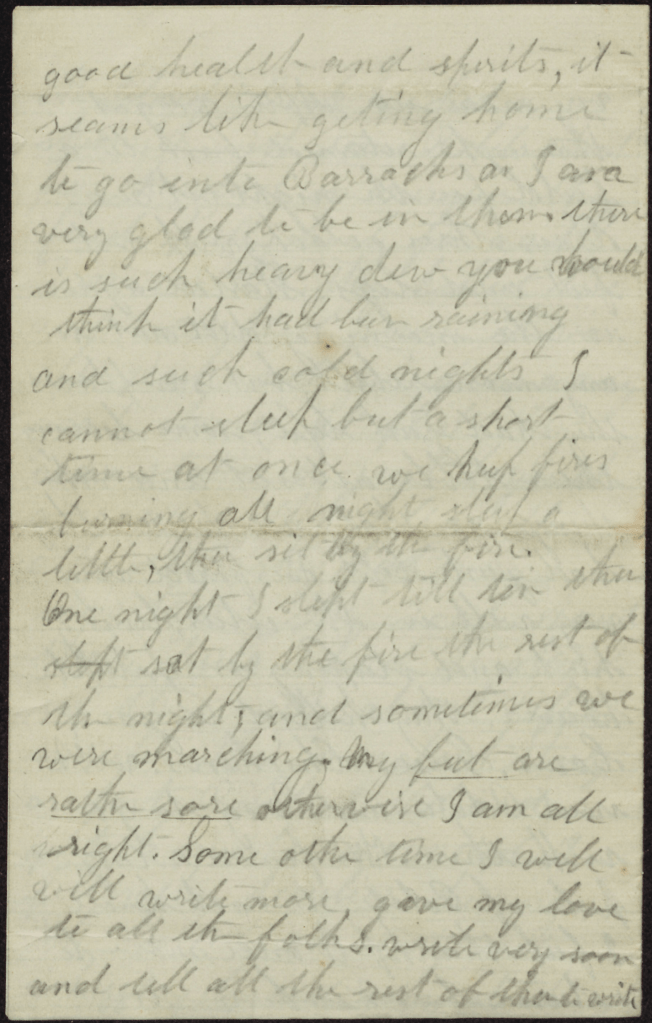 good health and spirits, it
seams like geting home
to go into Barracks as I am
very glad to be in them there
is such heavy dew you would
think it had bin raining
and such cold nights I
cannot sleep but a short
time at once. we keep fires
burning all night sleep a
little, then sit by the fire.
One night I slept till ten then
slept sat by the fire the rest of
the night, and sometimes we
were marching. My feet are
rather sore otherwise I am all
right. Some other time I will
will write more, gave my love
to all the folks. write very soon
and tell all the rest of them to write